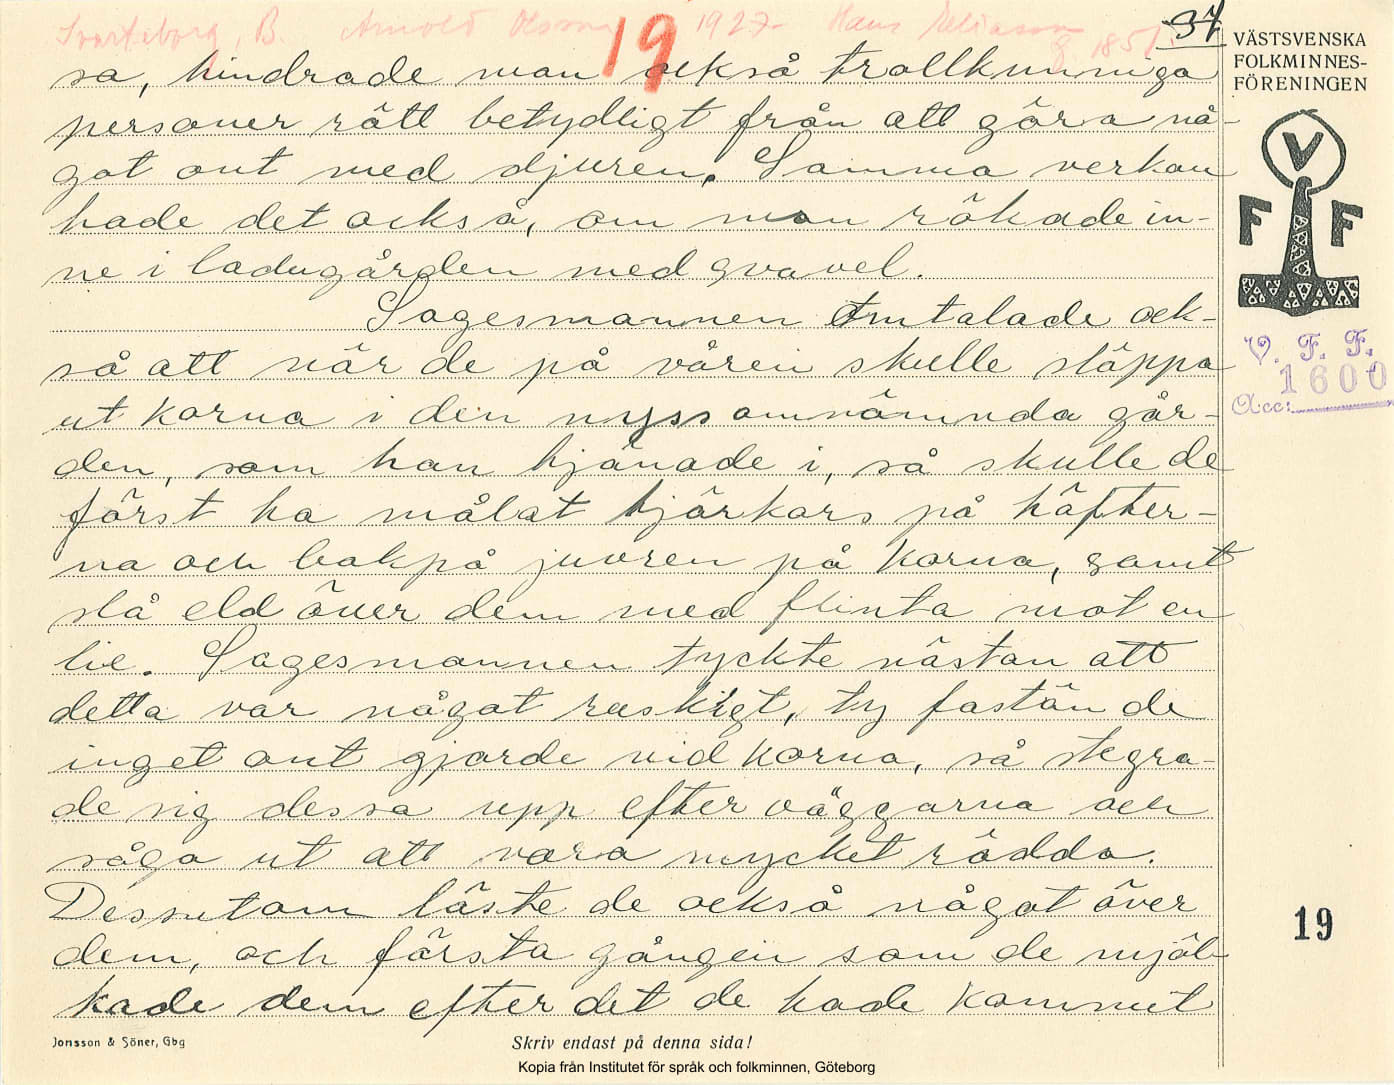 Svarteborg, B. Arnold Olsson 1927 Hans Eliasson
19
37
f. 1851.
VÄSTSVENSKA
FOLKMINNES-
FÖRENINGEN
V
F F
V. F. F.
1600
Acc:
sa, hindrade man också trollkunniga
personer rätt betydligt från att göra nå-
got ont med djuren. Samma verkan
hade det också, om man rökade in-
ne i ladugården med svavel.
Sagesmannen omtalade ock-
så att när de på våren skulle släppa
ut korna i den nyssomnämnda går-
den, som han tjänade i, så skulle de
först ha målat tjärkors på höfter-
na och bakpå juvren på korna, samt
slå eld över dem med flinta mot en
lie. Sagesmannen tyckte nästan att
detta var något ruskigt, ty fastän de
inget ont gjorde vid korna, så stegra-
de sig dessa upp efter väggarna och
såga ut att vara mycket rädda.
Dessutom läste de också något över
dem, och första gången som de mjöl-
kade dem efter det de hade kommit
19
Jonsson & Söner, Gbg
Skriv endast på denna sida!
Kopia från Institutet för språk och folkminnen, Göteborg